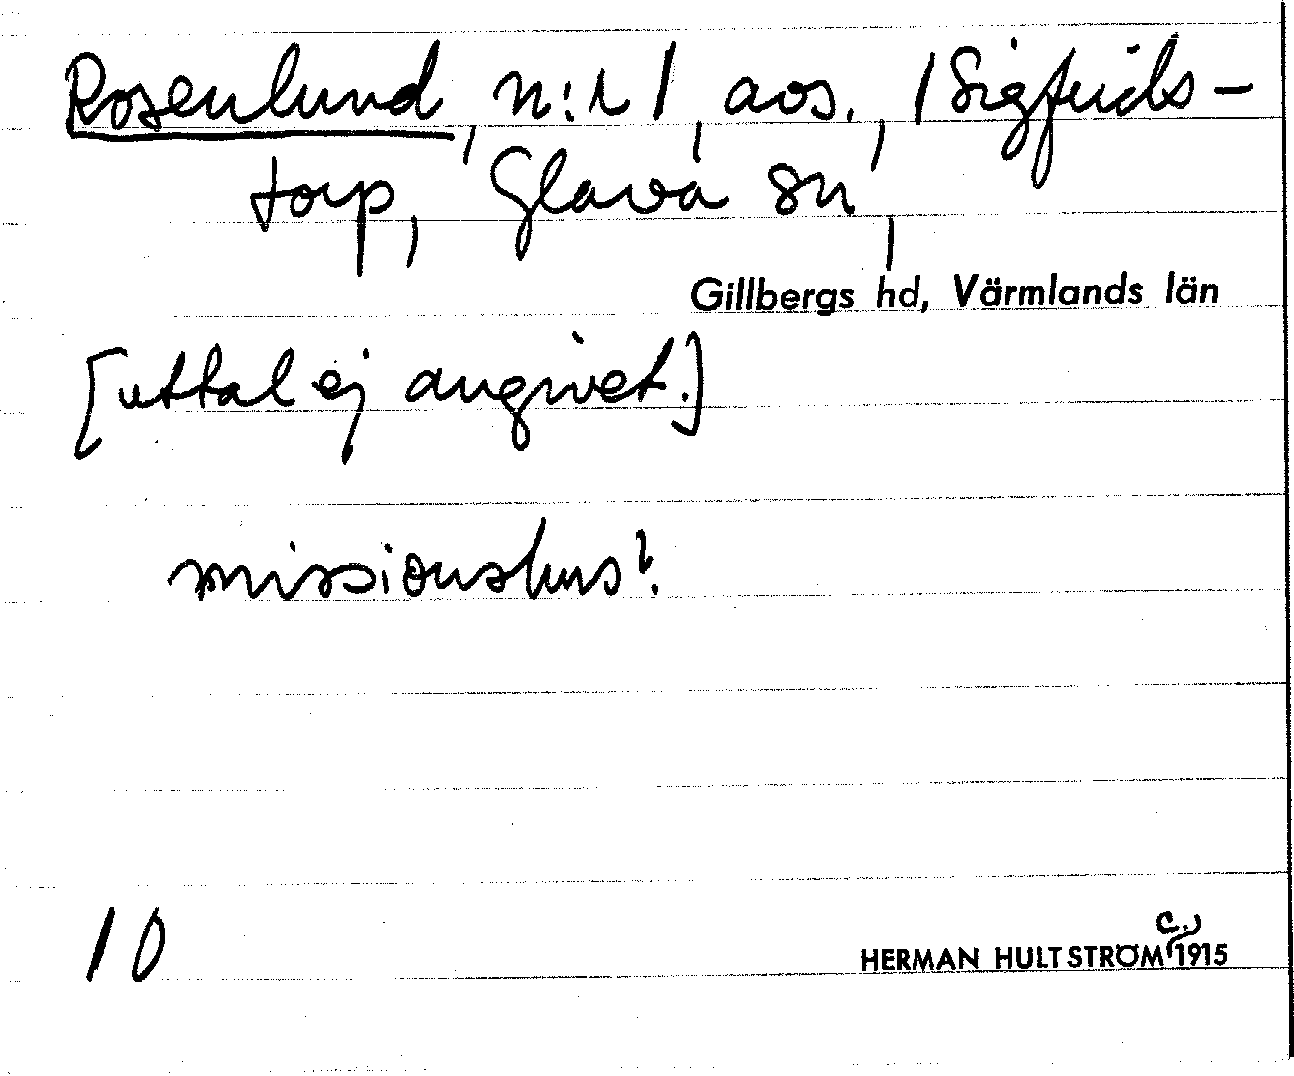 Rosenlund, n:r 1, aos., 1 Sigfrids-
torp, Glava sn,
Gillbergs hd, Värmlands län
[uttal ej angivet.]
missionshus?
10
c.)
HERMAN HULTSTRÖM 1915